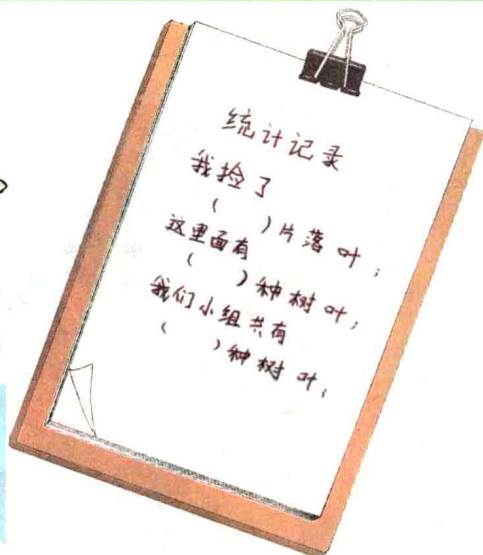 统计记录
我捡了
（    ）片落叶；
这里面有
（    ）种树叶；
我们小组共有
（    ）种树叶。